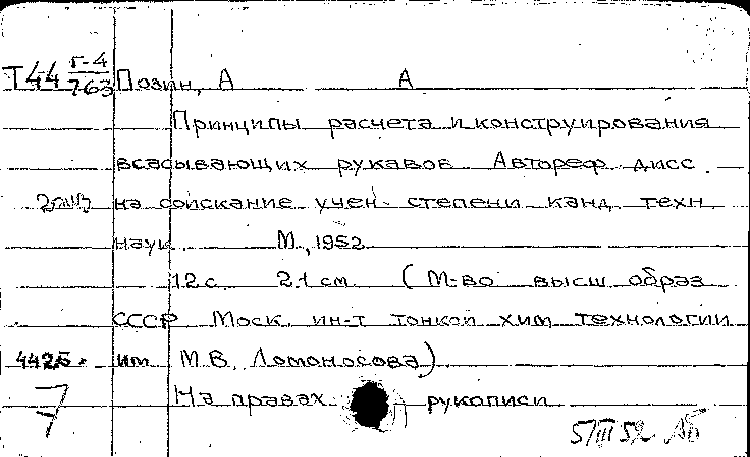 Т44 г-4/763 Позин, А А
Принципы расчета и конструирования
всасывающих рукавов. Автореф дисс.
на соискание учен. степени канд. техн.
наук. М., 1952
12 с. 21 см. (М-во высш образ
СССР Моск. ин-т тонкой хим технологии
442Б. им М.В. Ломоносова)
7 На правах рукописи
5/III 52